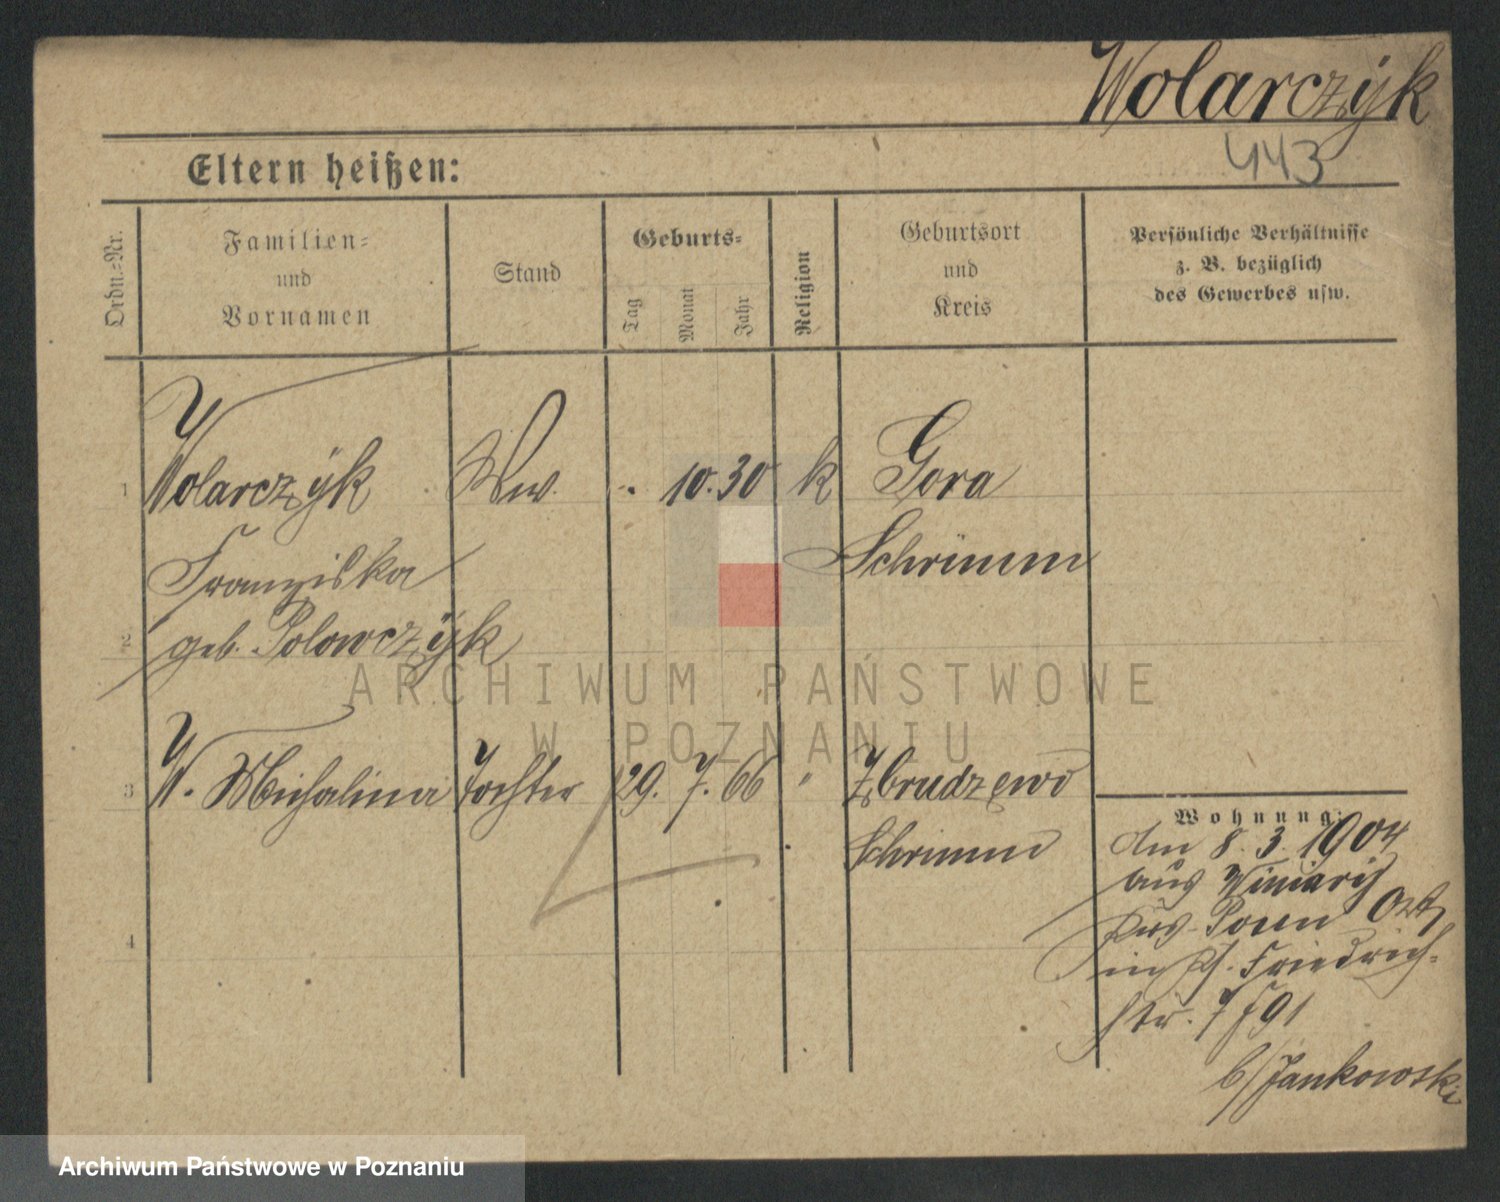 Wolarczÿk
443
Eltern heißen:
Ordn.=Nr.
Familien=
und
Vornamen
Stand
Geburts=
Tag
Monat
Jahr
Religion
Geburtsort
und
Kreis
Persönliche Verhältnisse
z. B. bezüglich
des Gewerbes usw.
1 Wolarczÿk Ww. . 10. 30 k Gora
Franziska Schrimm
2 geb. Polowczÿk
3 W. Michalina Tochter 29. 7. 66 " Zbrudzewo
Schrimm
4
Wohnung:
Am 8. 3. 1904
aus Winiary
Krs. Posen Ost
in Friedrich=
str. 7
b/Jankowski
ARCHIWUM PAŃSTWOWE
W POZNANIU
Archiwum Państwowe w Poznaniu